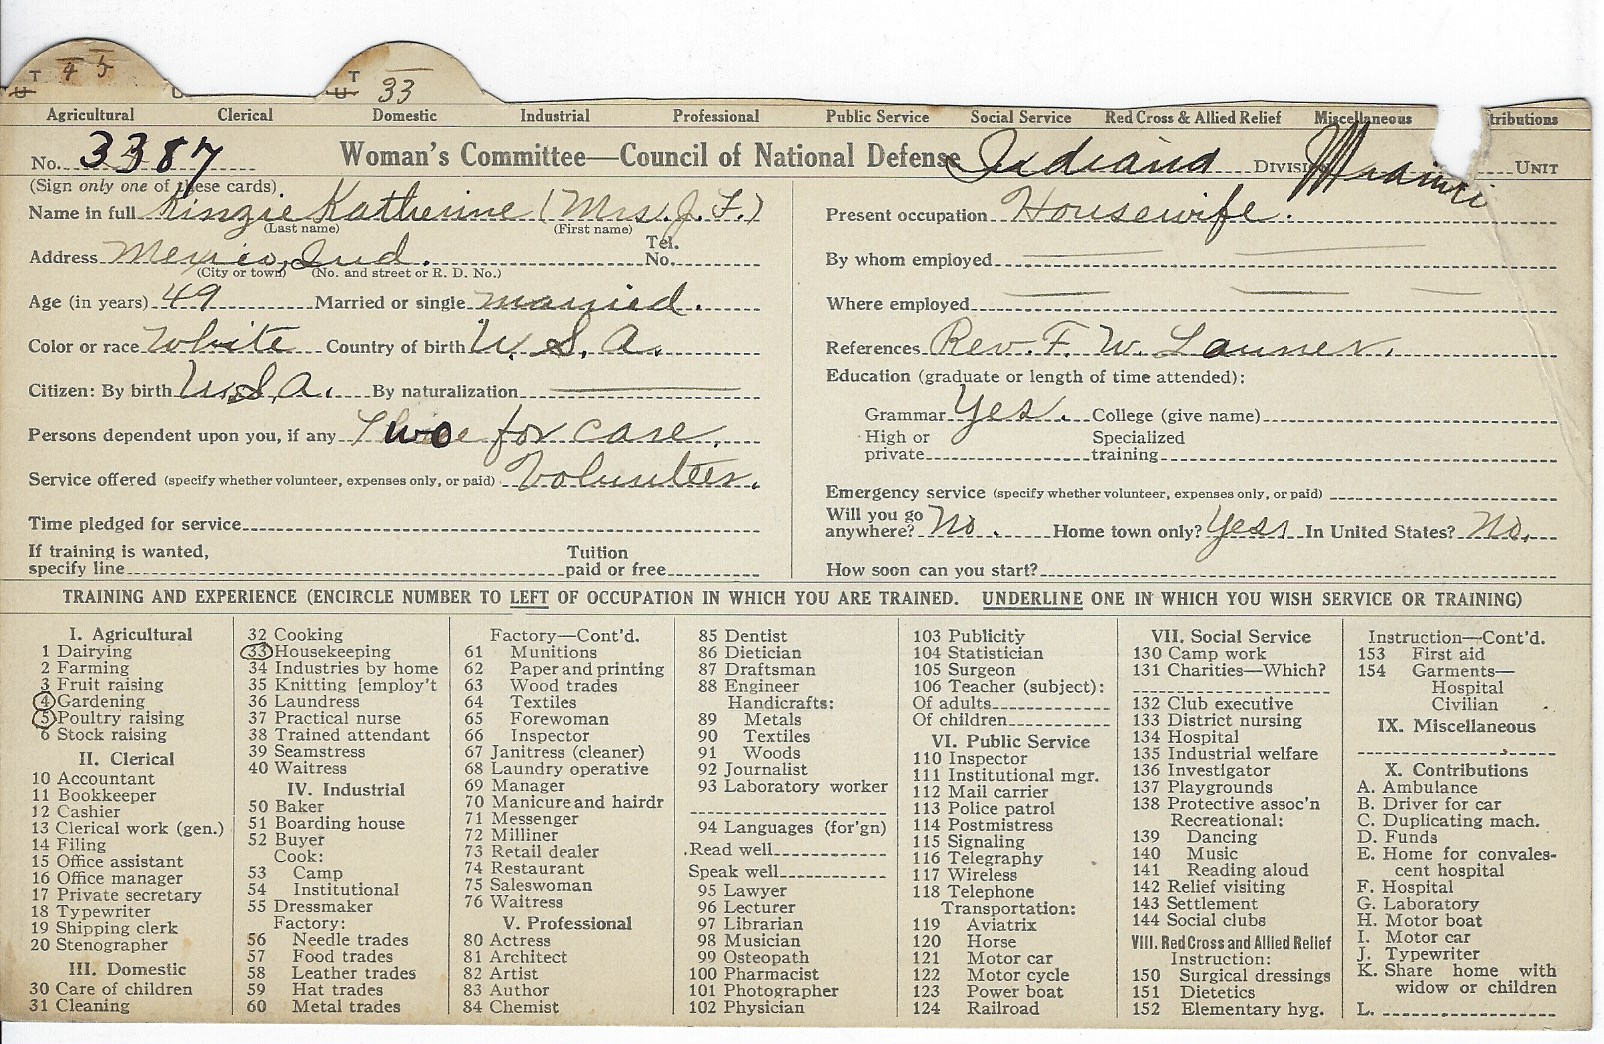 T 4 5 T 33
U U
Agricultural Clerical Domestic Industrial Professional Public Service Social Service Red Cross & Allied Relief Miscellaneous tributions
No. 3387 Woman's Committee—Council of National Defense Indiana Division Miami Unit
(Sign only one of these cards)
Name in full Kinzie Katherine (Mrs. J. F.)
(Last name) (First name)
Address Mexico, Ind. Tel. No.
(City or town) (No. and street or R. D. No.)
Age (in years) 49 Married or single married.
Color or race White Country of birth U. S. A.
Citizen: By birth U.S.A. By naturalization
Persons dependent upon you, if any Two for care.
Service offered (specify whether volunteer, expenses only, or paid) Volunteer.
Time pledged for service
If training is wanted, specify line Tuition paid or free
Present occupation Housewife.
By whom employed
Where employed
References Rev. F. W. Launer.
Education (graduate or length of time attended):
Grammar Yes. College (give name)
High or private Specialized training
Emergency service (specify whether volunteer, expenses only, or paid)
Will you go anywhere? No. Home town only? Yes. In United States? No.
How soon can you start?
TRAINING AND EXPERIENCE (ENCIRCLE NUMBER TO LEFT OF OCCUPATION IN WHICH YOU ARE TRAINED. UNDERLINE ONE IN WHICH YOU WISH SERVICE OR TRAINING)
I. Agricultural
1 Dairying
2 Farming
3 Fruit raising
4 Gardening
5 Poultry raising
6 Stock raising
II. Clerical
10 Accountant
11 Bookkeeper
12 Cashier
13 Clerical work (gen.)
14 Filing
15 Office assistant
16 Office manager
17 Private secretary
18 Typewriter
19 Shipping clerk
20 Stenographer
III. Domestic
30 Care of children
31 Cleaning
32 Cooking
33 Housekeeping
34 Industries by home
35 Knitting [employ't
36 Laundress
37 Practical nurse
38 Trained attendant
39 Seamstress
40 Waitress
IV. Industrial
50 Baker
51 Boarding house
52 Buyer
Cook:
53 Camp
54 Institutional
55 Dressmaker
Factory:
56 Needle trades
57 Food trades
58 Leather trades
59 Hat trades
60 Metal trades
Factory—Cont'd.
61 Munitions
62 Paper and printing
63 Wood trades
64 Textiles
65 Forewoman
66 Inspector
67 Janitress (cleaner)
68 Laundry operative
69 Manager
70 Manicure and hairdr
71 Messenger
72 Milliner
73 Retail dealer
74 Restaurant
75 Saleswoman
76 Waitress
V. Professional
80 Actress
81 Architect
82 Artist
83 Author
84 Chemist
85 Dentist
86 Dietician
87 Draftsman
88 Engineer
Handicrafts:
89 Metals
90 Textiles
91 Woods
92 Journalist
93 Laboratory worker
94 Languages (for'gn)
Read well
Speak well
95 Lawyer
96 Lecturer
97 Librarian
98 Musician
99 Osteopath
100 Pharmacist
101 Photographer
102 Physician
103 Publicity
104 Statistician
105 Surgeon
106 Teacher (subject):
Of adults
Of children
VI. Public Service
110 Inspector
111 Institutional mgr.
112 Mail carrier
113 Police patrol
114 Postmistress
115 Signaling
116 Telegraphy
117 Wireless
118 Telephone
Transportation:
119 Aviatrix
120 Horse
121 Motor car
122 Motor cycle
123 Power boat
124 Railroad
VII. Social Service
130 Camp work
131 Charities—Which?
132 Club executive
133 District nursing
134 Hospital
135 Industrial welfare
136 Investigator
137 Playgrounds
138 Protective assoc'n
Recreational:
139 Dancing
140 Music
141 Reading aloud
142 Relief visiting
143 Settlement
144 Social clubs
VIII. Red Cross and Allied Relief
Instruction:
150 Surgical dressings
151 Dietetics
152 Elementary hyg.
Instruction—Cont'd.
153 First aid
154 Garments—
Hospital
Civilian
IX. Miscellaneous
X. Contributions
A. Ambulance
B. Driver for car
C. Duplicating mach.
D. Funds
E. Home for convales-
cent hospital
F. Hospital
G. Laboratory
H. Motor boat
I. Motor car
J. Typewriter
K. Share home with
widow or children
L.